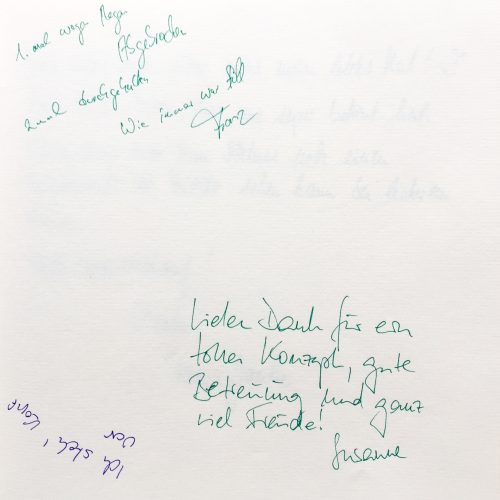 1. mal wegen Regen
Abgebrochen
2 mal durchgehalten
Wie immer war
Franz
Vielen Dank für ein
tolles Konzept, gute
Betreuung und ganz
viel Freude!
Susanne
Ich steh,
vor